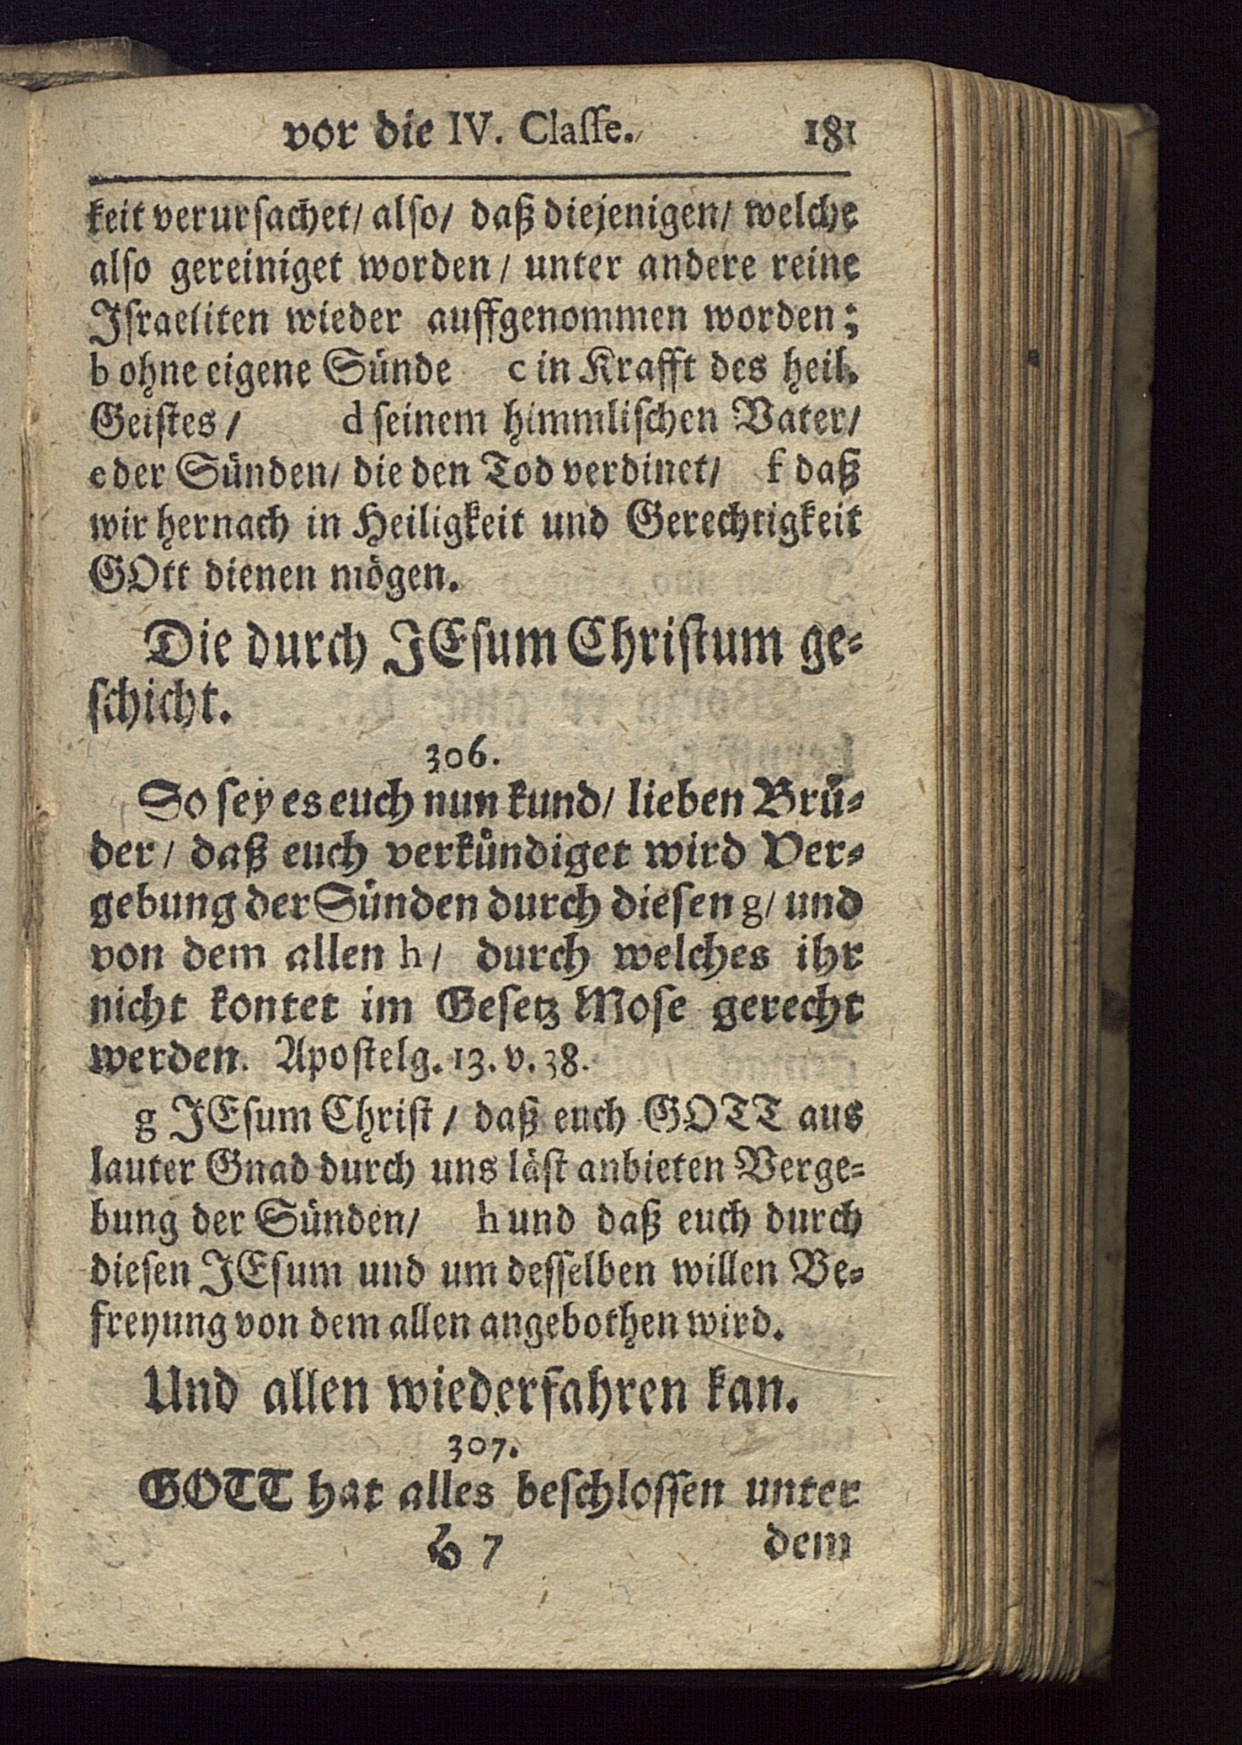 vor die IV. Classe. 181
keit verursachet/ also/ daß diejenigen/ welche
also gereiniget worden/ unter andere reine
Israeliten wieder auffgenommen worden;
b ohne eigene Sünde c in Krafft des heil.
Geistes/ d seinem himmlischen Vater/
e der Sünden/ die den Tod verdinet/ f daß
wir hernach in Heiligkeit und Gerechtigkeit
GOtt dienen mögen.
Die durch JEsum Christum ge-
schicht.
306.
So sey es euch nun kund/ lieben Brü-
der/ daß euch verkündiget wird Ver-
gebung der Sünden durch diesen g/ und
von dem allen h/ durch welches ihr
nicht kontet im Gesetz Mose gerecht
werden. Apostelg. 13. v. 38.
g JEsum Christ/ daß euch GOTT aus
lauter Gnad durch uns läst anbieten Verge-
bung der Sünden/ h und daß euch durch
diesen JEsum und um desselben willen Be-
freyung von dem allen angebothen wird.
Und allen wiederfahren kan.
307.
GOTT hat alles beschlossen unter
7 dem